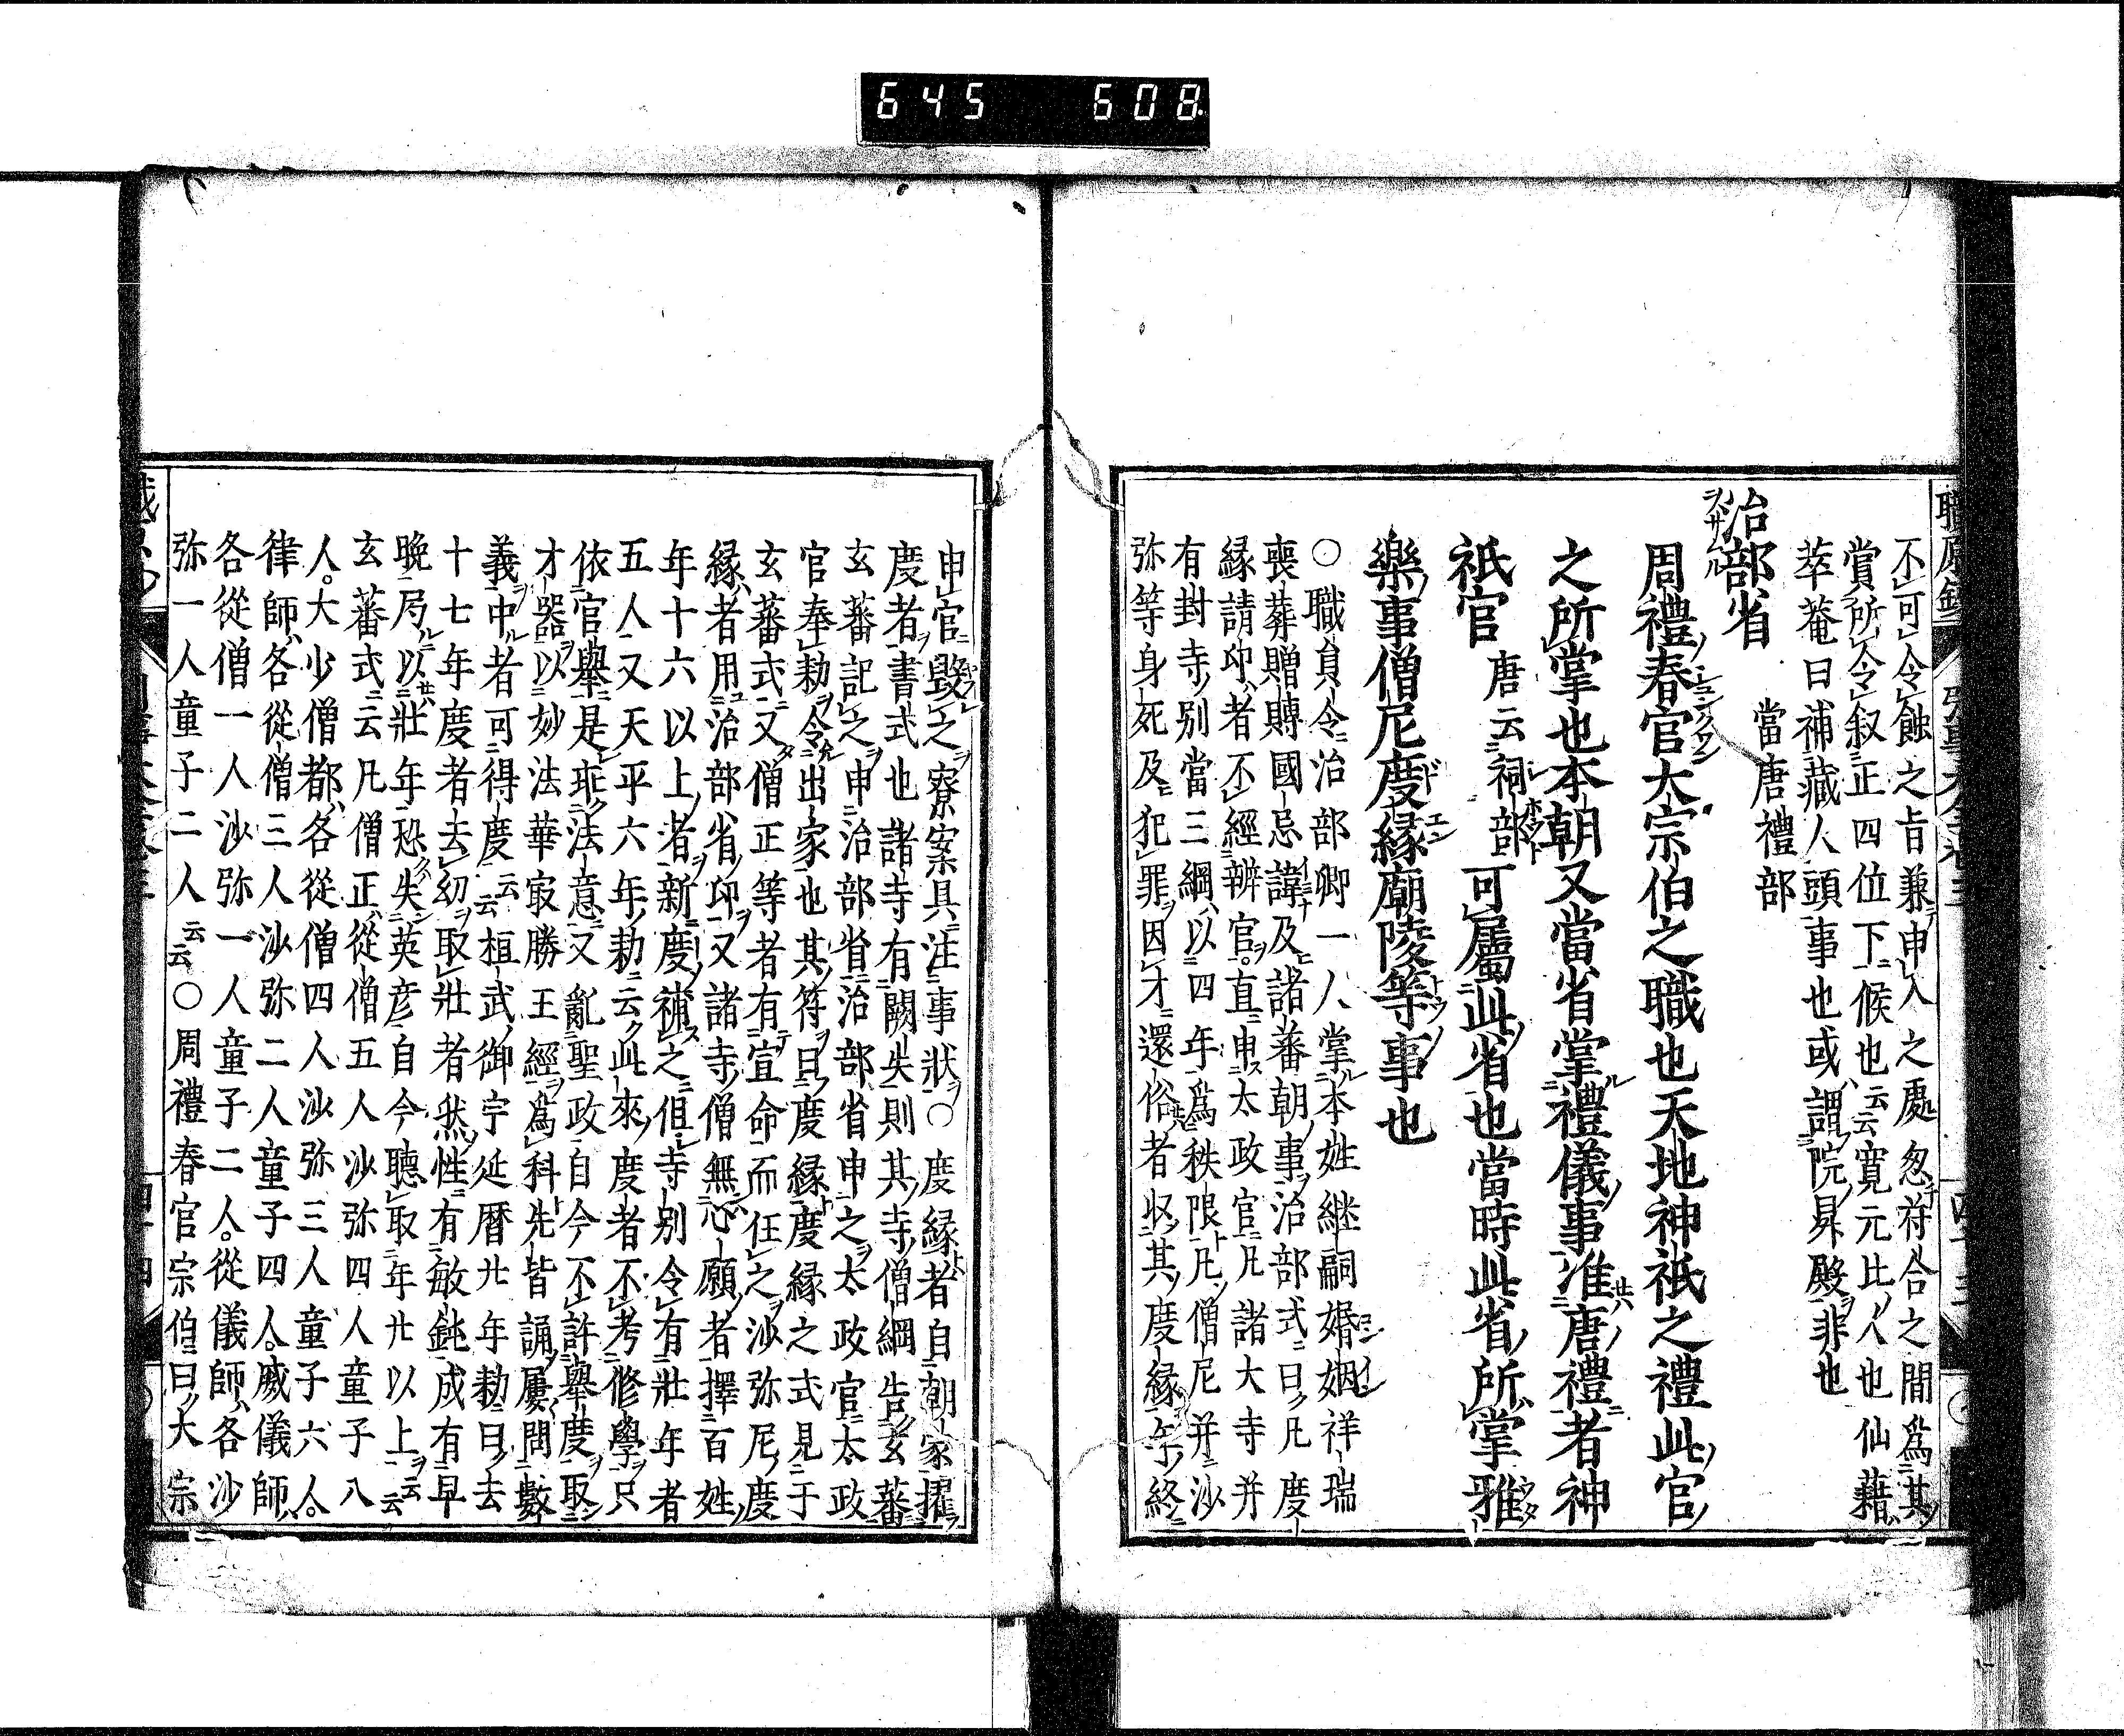 645 608
不可令蝕之旨兼申入之處忽符合之間爲其
賞所令叙正四位下候也云云寛元比人也仙藉
萃菴曰補藏人頭事也或謂院昇殿非也
治部省 當唐禮部
周禮春官大宗伯之職也天地神祇之禮此官
之所掌也本朝又當省掌禮儀事准唐禮者神
祇官 唐云祠部 可屬此省也當時此省所掌雅
樂事僧尼度縁廟陵等事也
○職員令治部卿一人掌本姓継嗣婚姻祥瑞
喪葬贈賻國忌諱及諸蕃朝事治部式曰凡度
縁請印者不經辨官直申太政官凡諸大寺并
有封寺別當三綱以四年爲秩限凡僧尼并沙
弥等身死及犯罪因才還俗者収其度縁年終
申官毀之寮案具注事狀○度縁者自朝家擢
度者書式也諸寺有闕失則其寺僧綱告玄蕃
玄蕃記之申治部省治部省申之太政官太政
官奉勅令出家也其符曰度縁度縁之式見于
玄蕃式又僧正等者有宣命而任之沙弥尼度
縁者用治部省印又諸寺僧無心願者擇百姓
年十六以上者新度補之但寺別令有壯年者
五人又天平六年勅云此來度者不考修學只
依官擧是乖法意又亂聖政自今不許擧度取
才器以妙法華最勝王經爲科先皆誦屢問數
義中者可得度云云桓武御宇延暦廿年勅曰去
十七年度者去幼取壯者然性有敏鈍成有早
晩局以壯年恐失英彦自今聽取年廿以上云云
玄蕃式云凡僧正從僧五人沙弥四人童子八
人大少僧都各從僧四人沙弥三人童子六人
律師各從僧三人沙弥二人童子四人威儀師
各從僧一人沙弥一人童子二人從儀師各沙
弥一人童子二人云云○周禮春官宗伯曰大宗